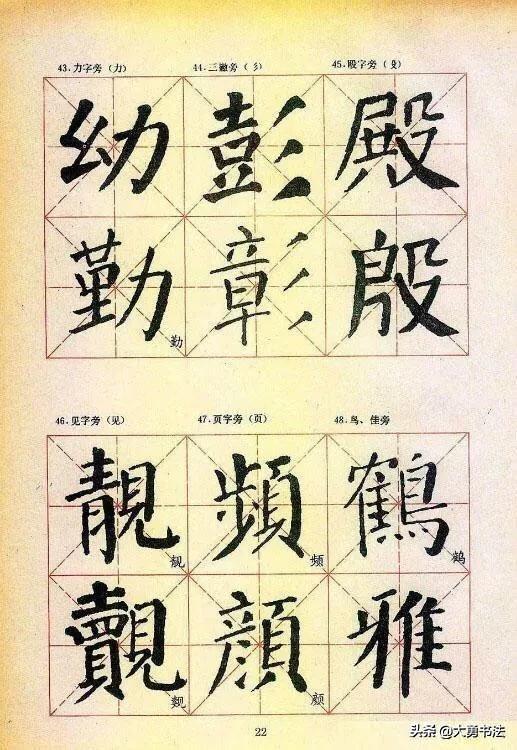 43.力字旁（力） 44.三撇旁（彡） 45.殴字旁（殳）
幼 彭 殿
勤 彰 殷
勤
46.见字旁（见） 47.页字旁（页） 48.鸟、佳旁
靚 頻 鶴
靓 频 鹤
覿 顔 雅
觌 颜
22
头条@大勇书法